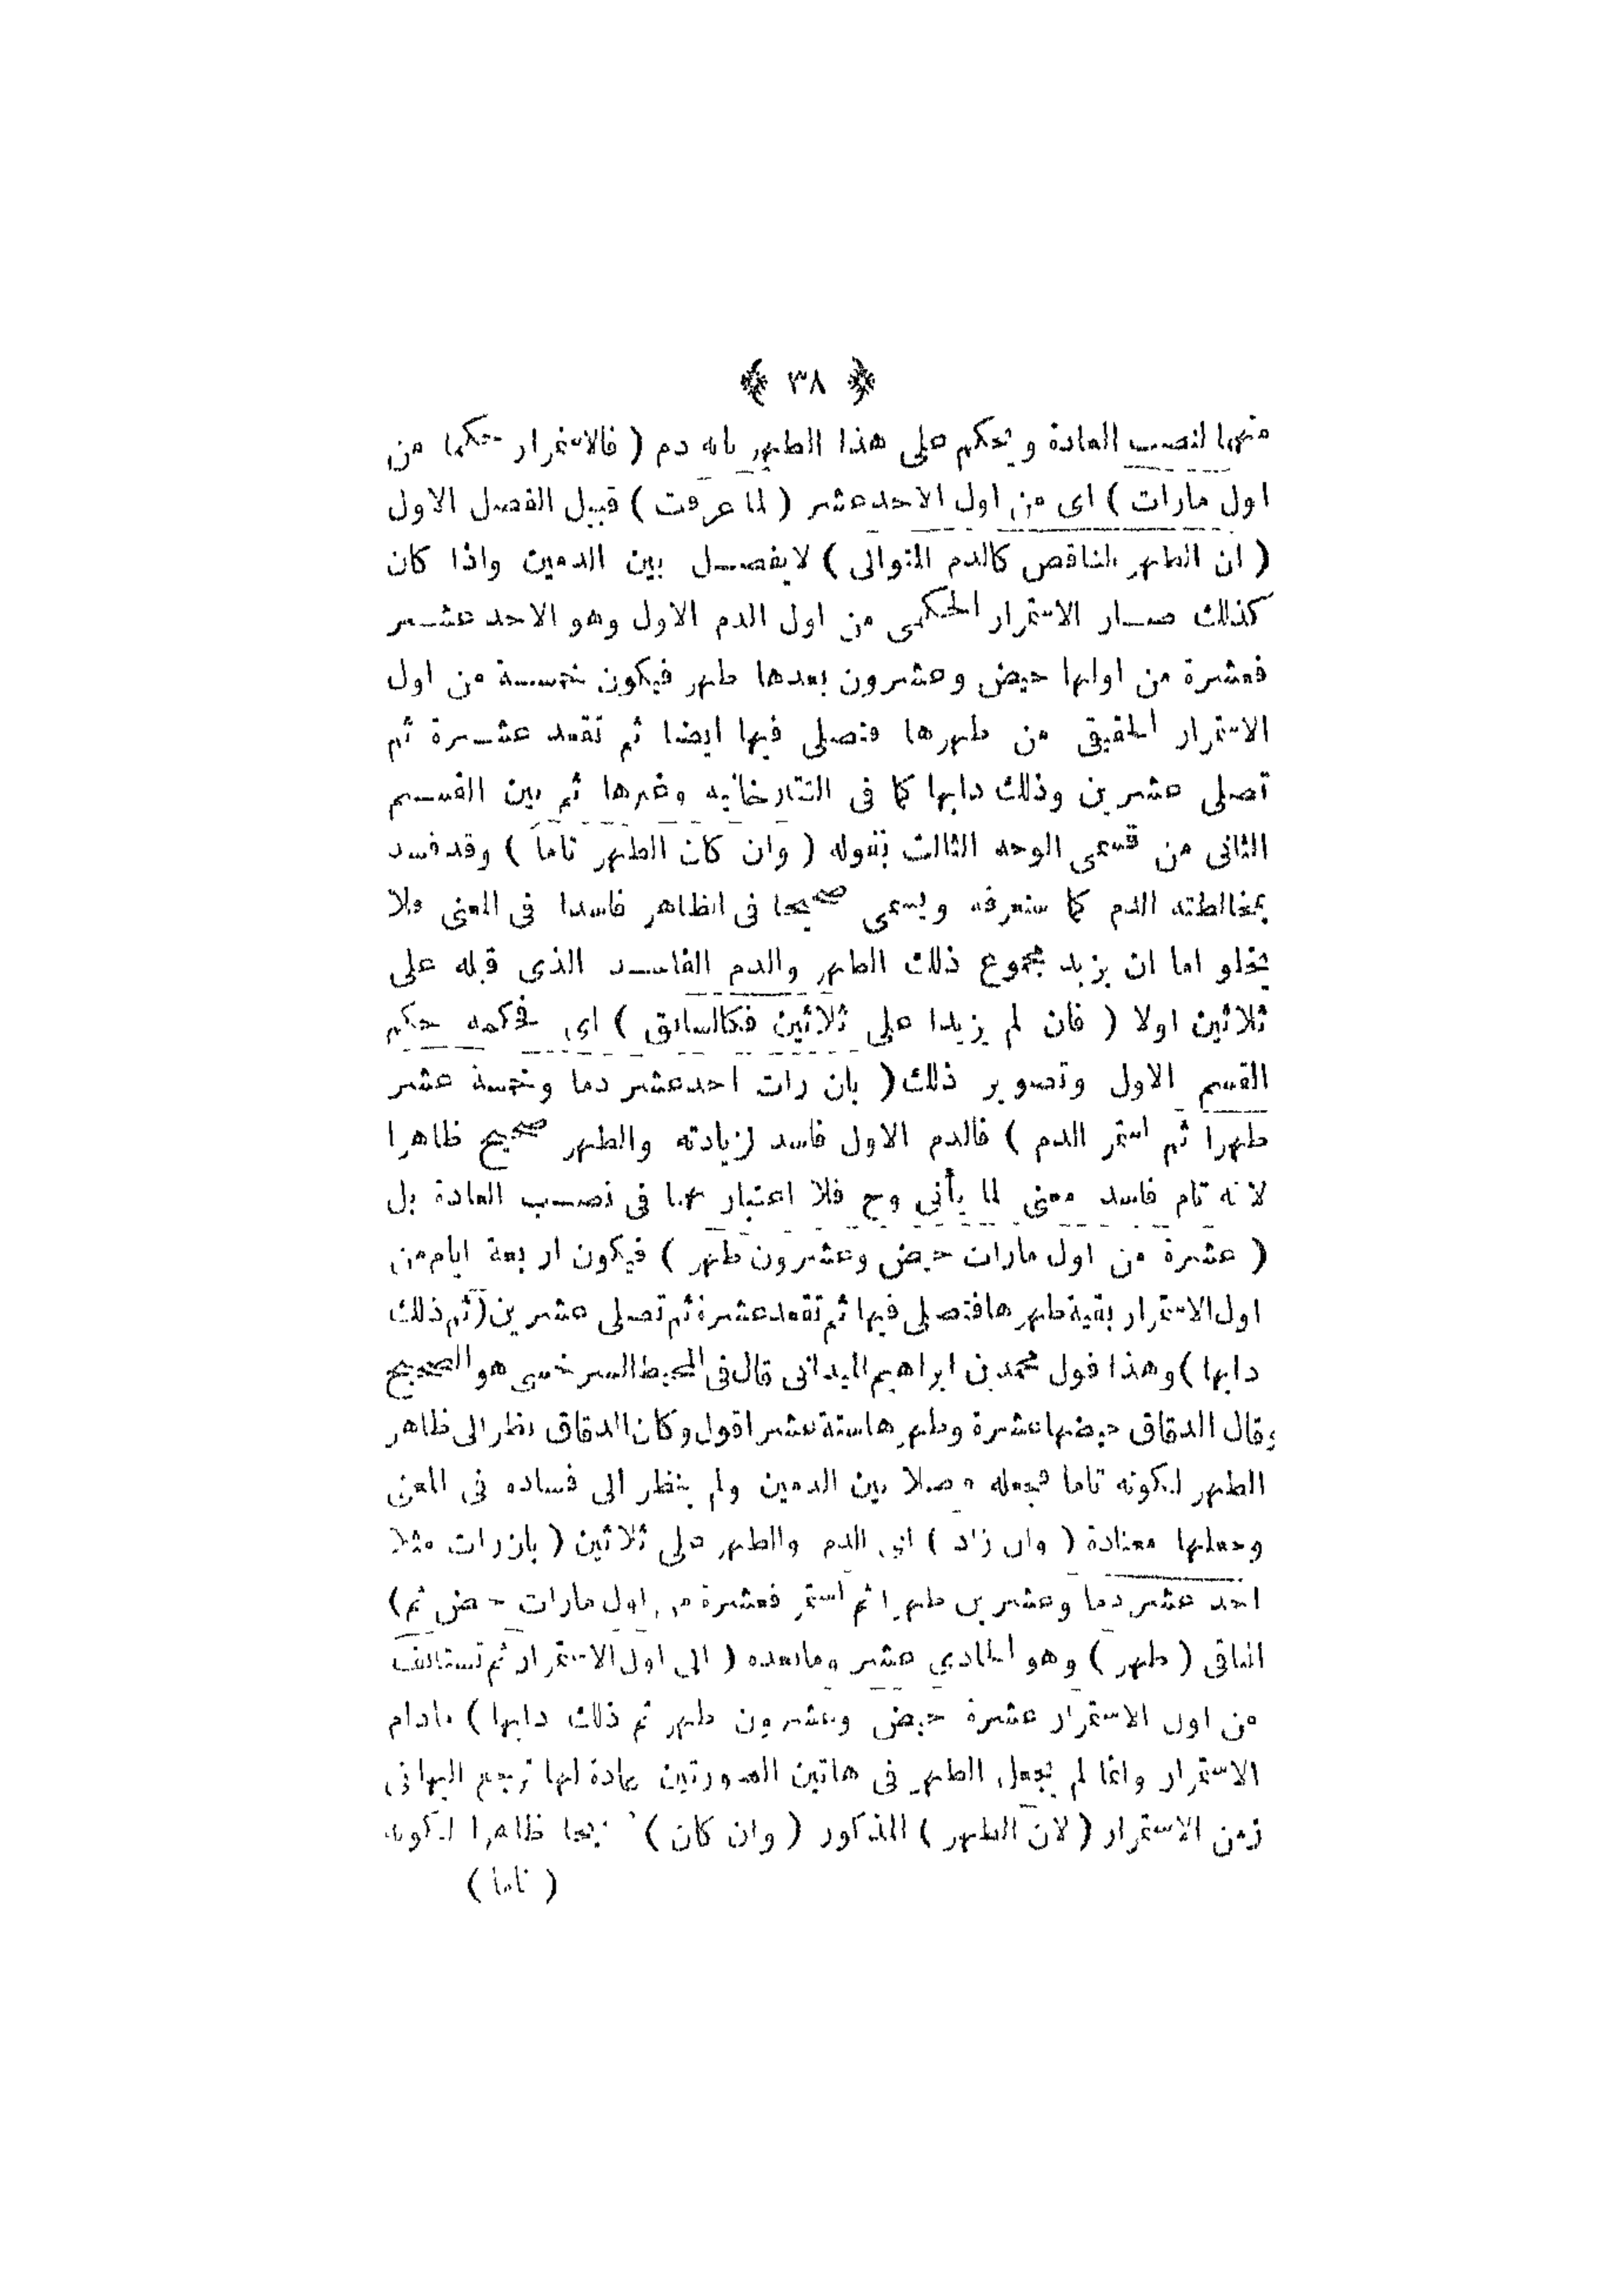 ﴿ ٣٨ ﴾
منهما لنصب العادة ونحكم على هذا الطهر بانه دم ( فالاستمرار حكما من
اول مارات ) اى من اول الاحد عشر ( لما عرفت ) قبيل الفصل الاول
( ان الطهر الناقص كالدم المتوالى ) لايفصل بين الدمين واذا كان
كذلك صار الاستمرار الحكمى من اول الدم الاول وهو الاحد عشر
فعشرة من اولها حيض وعشرون بعدها طهر فيكون خمسة من اول
الاستمرار الحقيقى من طهرها فتصلى فيها ايضا ثم تقعد عشرة ثم
تصلى عشرين وذلك دابها كما فى التتارخانيه وغيرها ثم بين القسم
الثانى من قسمى الوجه الثالث بقوله ( وان كان الطهر تاما ) وقد فسد
بمخالطته الدم كما ستعرفه ويسمى صحيحا فى الظاهر فاسدا فى المعنى فلا
يخلو اما ان يزيد مجموع ذلك الطهر والدم الفاسد الذى قبله على
ثلاثين اولا ( فان لم يزيدا على ثلاثين فكالسابق ) اى فحكمه حكم
القسم الاول وتصوير ذلك ( بان رات احد عشر دما وخمسة عشر
طهرا ثم استمر الدم ) فالدم الاول فاسد لزيادته والطهر صحيح ظاهرا
لانه تام فاسد معنى لما يأتى وح فلا اعتبار بهما فى نصب العادة بل
( عشرة من اول مارات حيض وعشرون طهر ) فيكون اربعة ايام من
اول الاستمرار بقية طهرها فتصلى فيها ثم تقعد عشرة ثم تصلى عشرين ( ثم ذلك
دابها ) وهذا قول محمد بن ابراهيم الميدانى قال فى المحيط السرخسى هو الصحيح
وقال الدقاق حيضها عشرة وطهرها ستة عشر اقول وكان الدقاق نظر الى ظاهر
الطهر لكونه تاما فجعله فصلا بين الدمين ولم ينظر الى فساده فى المعنى
وجعلها معتادة ( وان زاد ) اى الدم والطهر على ثلاثين ( بان رات مثلا
احد عشر دما وعشرين طهرا ثم استمر فعشرة من اول مارات حيض ثم )
الباقى ( طهر ) وهو الحادى عشر ومابعده ( الى اول الاستمرار ثم تستانف
من اول الاستمرار عشرة حيض وعشرون طهر ثم ذلك دابها ) مادام
الاستمرار وانما لم نجعل الطهر فى هاتين الصورتين عادة لها ترجع اليها فى
زمن الاستمرار ( لان الطهر ) المذكور ( وان كان ) ظاهرا لكونه
( تاما )